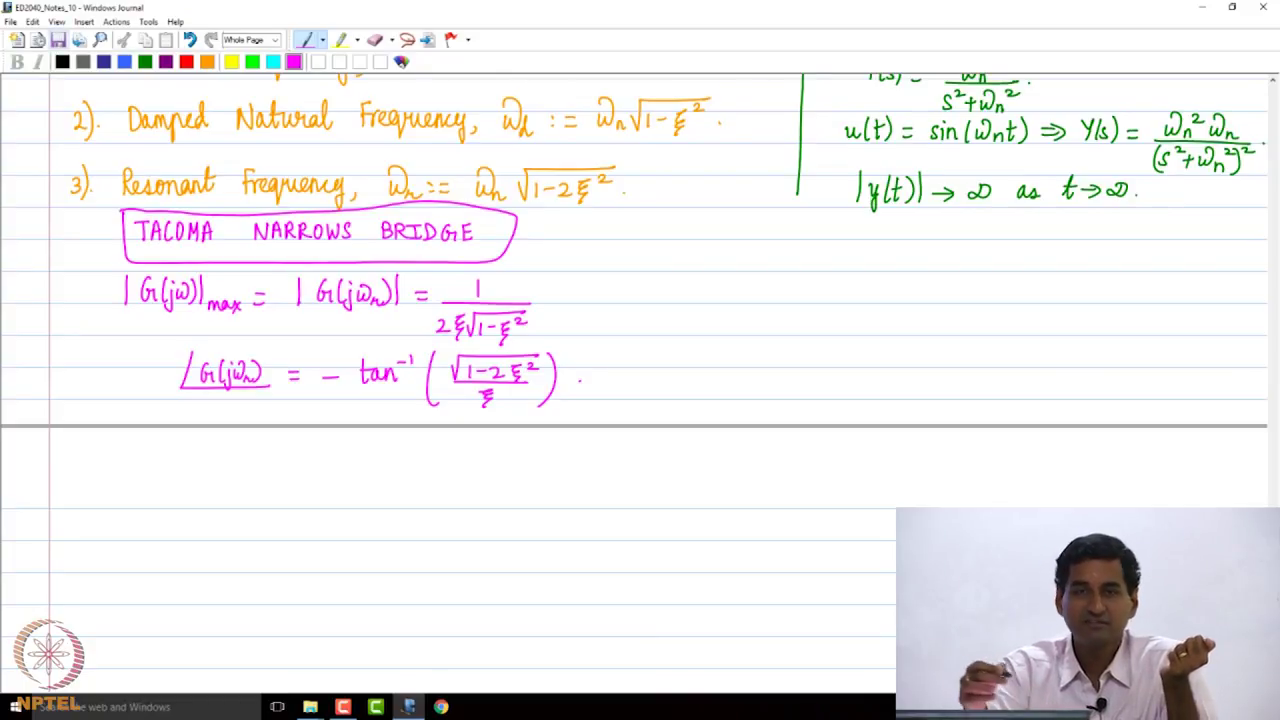 ED2040_Notes_10 - Windows Journal
File Edit View Insert Actions Tools Help
Whole Page
B I
2). Damped Natural Frequency, ω_d := ω_n √(1-ξ²).
3). Resonant Frequency, ω_r := ω_n √(1-2ξ²).
TACOMA NARROWS BRIDGE
|G(jω)|_max = |G(jω_r)| = 1 / (2ξ√(1-ξ²))
∠G(jω_r) = - tan⁻¹ (√(1-2ξ²) / ξ).
s²+ω_n².
u(t) = sin(ω_n t) ⇒ Y(s) = ω_n² ω_n / (s²+ω_n²)².
|y(t)| → ∞ as t → ∞.
NPTEL
Search the web and Windows